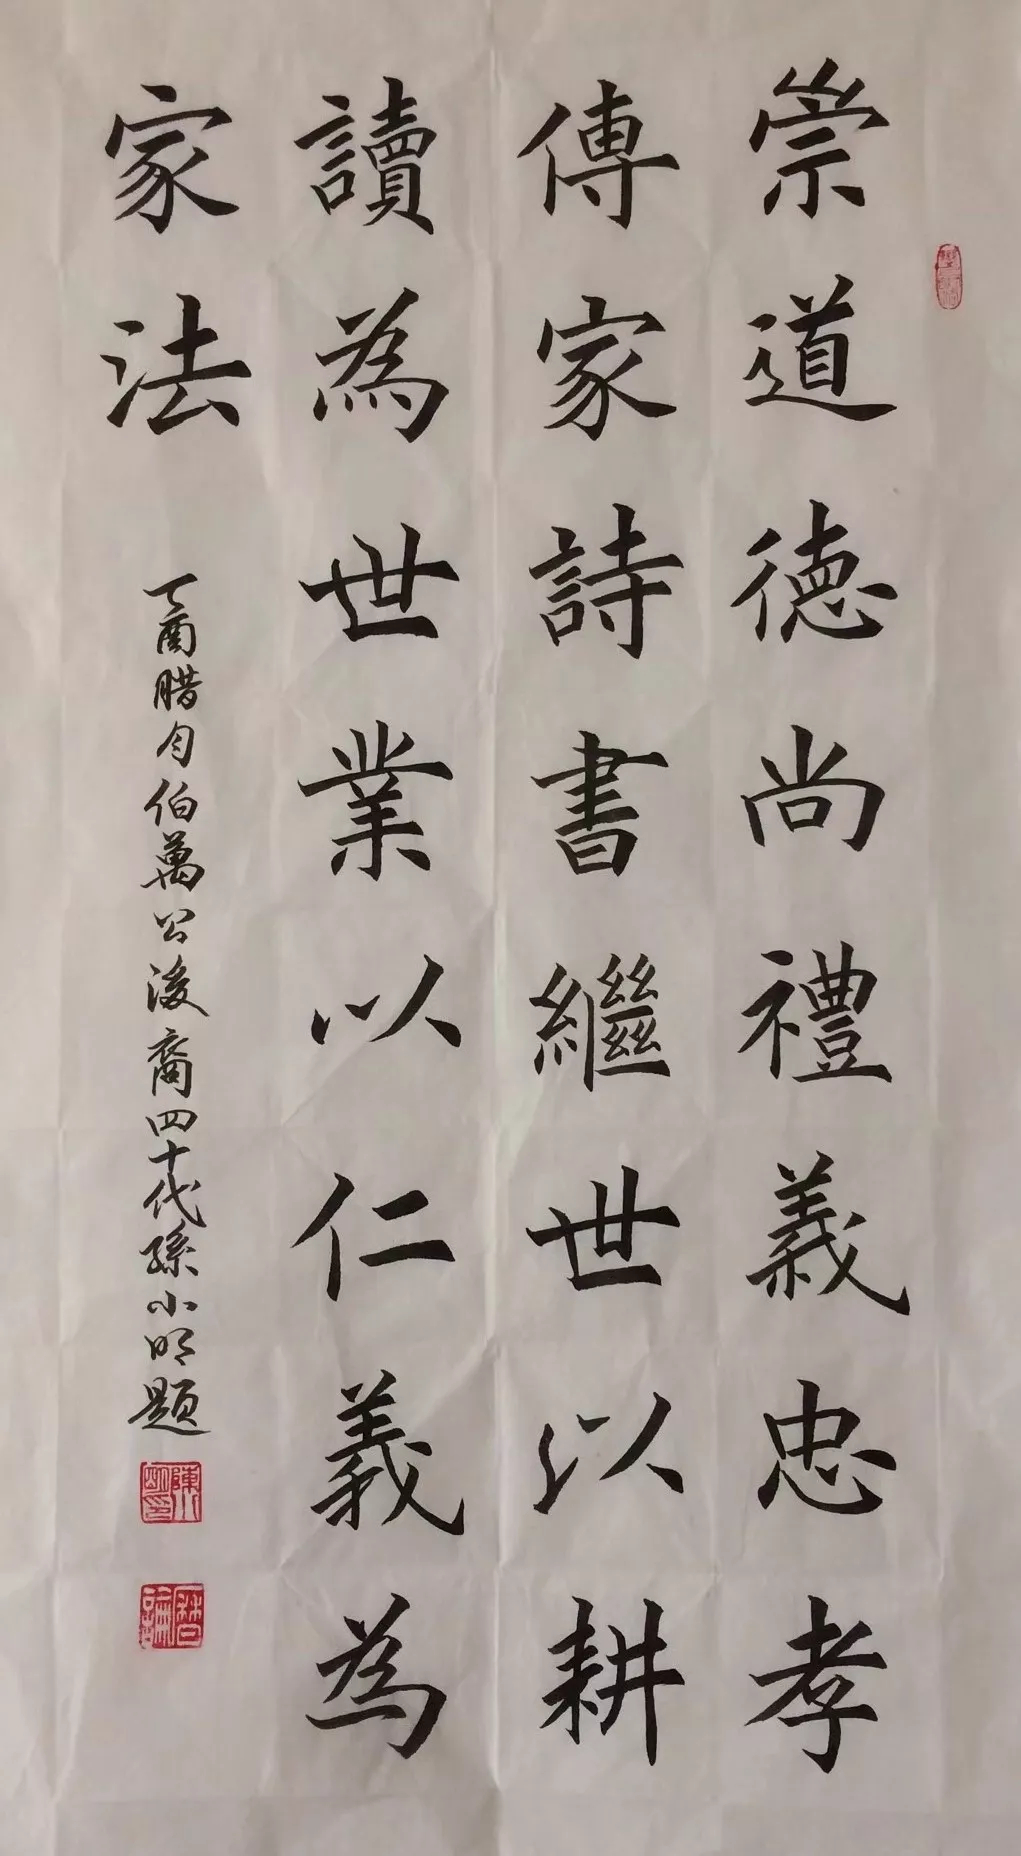 崇道德尚禮義忠孝
傳家詩書繼世以耕
讀為世業以仁義為
家法
丁酉腊月伯萬公後裔四十代孫小明題